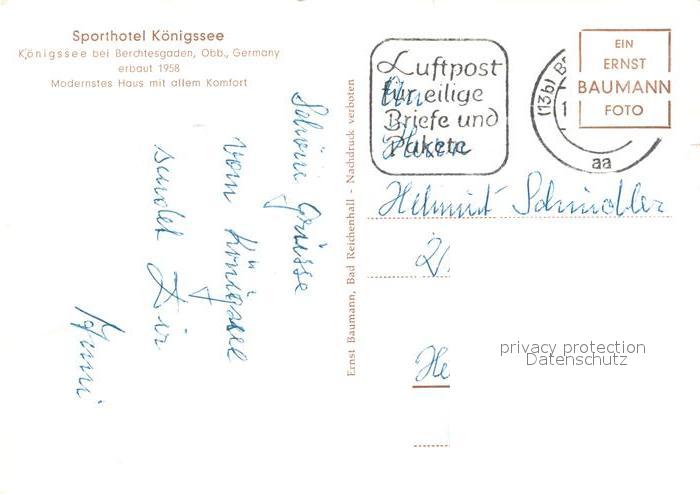 Sporthotel Königssee
Königssee bei Berchtesgaden, Obb., Germany
erbaut 1958
Modernstes Haus mit allem Komfort
Schöne Grüsse
vom Königssee
sendet Dir
Ernst Baumann, Bad Reichenhall - Nachdruck verboten
Luftpost
für eilige
Briefe und
Pakete
(13b) B
aa
EIN
ERNST
BAUMANN
FOTO
An
Herrn
Helmut Schindler
He
privacy protection
Datenschutz